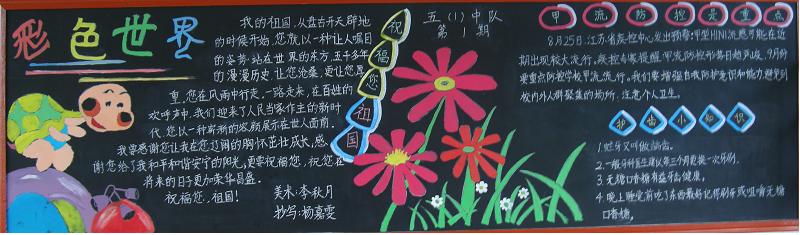 彩色世界
我的祖国，从盘古开天辟地
的时候开始，您就以一种让人瞩目
的姿势，站在世界的东方，五千多年
的漫漫历史，让您沧桑，更让您厚
重，您在风雨中行走，一路走来，在百姓的
欢呼声中，我们迎来了人民当家作主的新时
代，您以一种崭新的容颜展示在世人面前。
我要感谢您让我在您辽阔的胸怀茁壮成长，感
谢您给了我和平和谐安宁的阳光，更要祝福您，祝您在
将来的日子更加荣华昌盛。
祝福您，祖国！
美术：李秋月
抄写：杨嘉雯
祝福您祖国
五（1）中队
第1期
甲流防控是重点
8月25日，江苏省疾控中心发出预警：甲型H1N1流感可能在近
期出现较大流行。疾控专家提醒，甲流防控形势日趋严峻，9月份
要重点防控学校甲流流行。我们要增强自我防护意识和能力，避免到
校内外人群聚集的场所，注意个人卫生。
护齿小知识
1.蛀牙又叫做龋齿。
2.一般牙科医生建议每三个月更换一次牙刷。
3.无糖口香糖有益牙齿健康。
4.晚上睡觉前吃了东西最好记得刷牙或咀嚼无糖
口香糖。